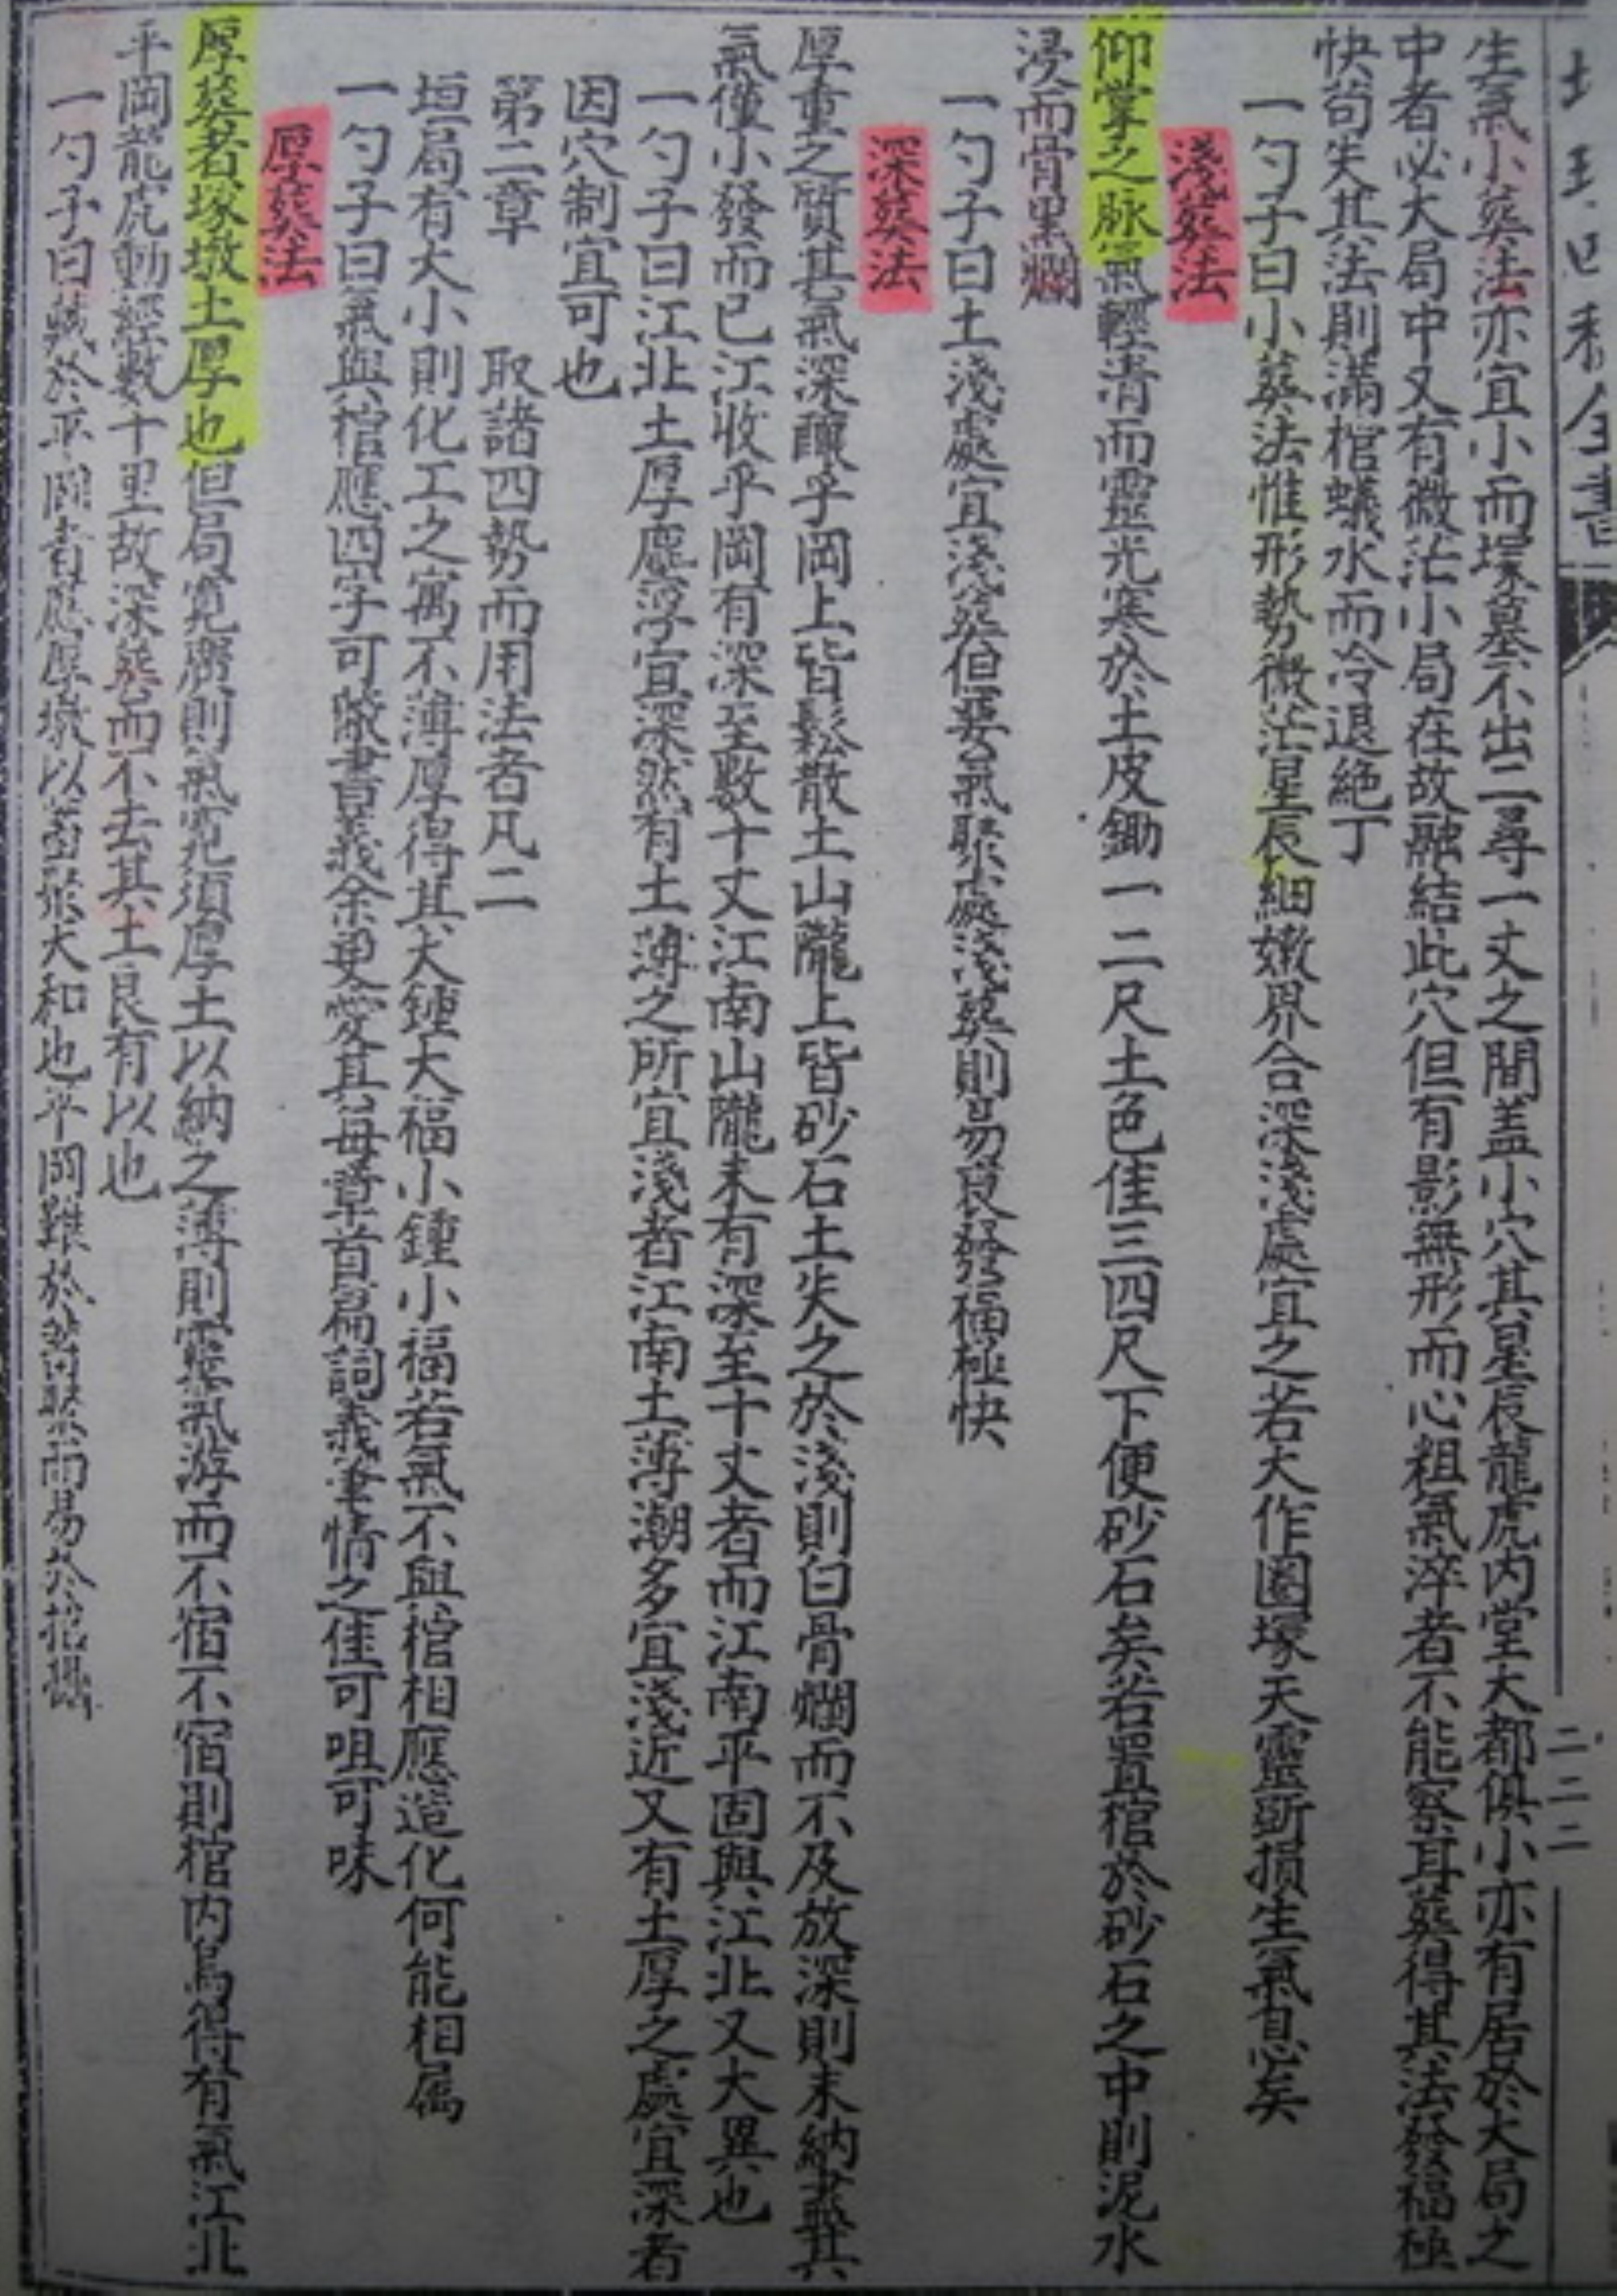 全書
二二二
生氣小葬法亦宜小而塚墓不出二尋一丈之間盖小穴其星辰龍虎内堂大都俱小亦有居於大局之
中者必大局中又有微茫小局在故融結此穴但有影無形而心粗氣淬者不能察耳葬得其法發福極
快苟失其法則滿棺蟻水而冷退絶丁
一勺子曰小葬法惟形勢微茫星辰細嫩界合深淺處宜之若大作圈塚天靈斲損生氣息矣
淺葬法
仰掌之脉氣輕清而靈光寒於土皮鋤一二尺土色佳三四尺下便砂石矣若置棺於砂石之中則泥水
浸而骨黑爛
一勺子曰土淺處宜淺葬但要氣聚處淺葬則易良發福極快
深葬法
厚重之質其氣深釀乎岡上皆鬆散土山隴上皆砂石土失之於淺則白骨爛而不及放深則未納盡其
氣僅小發而已江收乎岡有深至數十丈江南山隴未有深至十丈者而江南平固與江北又大異也
一勺子曰江北土厚塵浮宜深然有土薄之所宜淺者江南土薄潮多宜淺近又有土厚之處宜深者
因穴制宜可也
第二章 取諸四勢而用法者凡二
垣局有大小則化工之寓不薄厚得其大鍾大福小鍾小福若氣不與棺相應造化何能相属
一勺子曰氣與棺應四字可蔽書義余更愛其每章首篇詞義筆情之佳可咀可味
厚葬法
厚葬者塚墩土厚也但局寬濶則氣寬須厚土以納之薄則靈氣游而不宿不宿則棺内烏得有氣江北
平岡龍虎動經數十里故深葬而不去其土良有以也
一勺子曰藏於平岡者應厚墩以蓄聚大和也平岡難於蓄聚而易於招攝